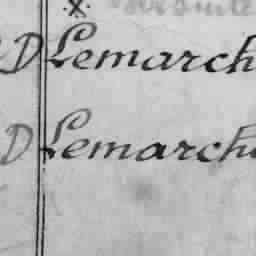 D Lemarch
D Lemarch